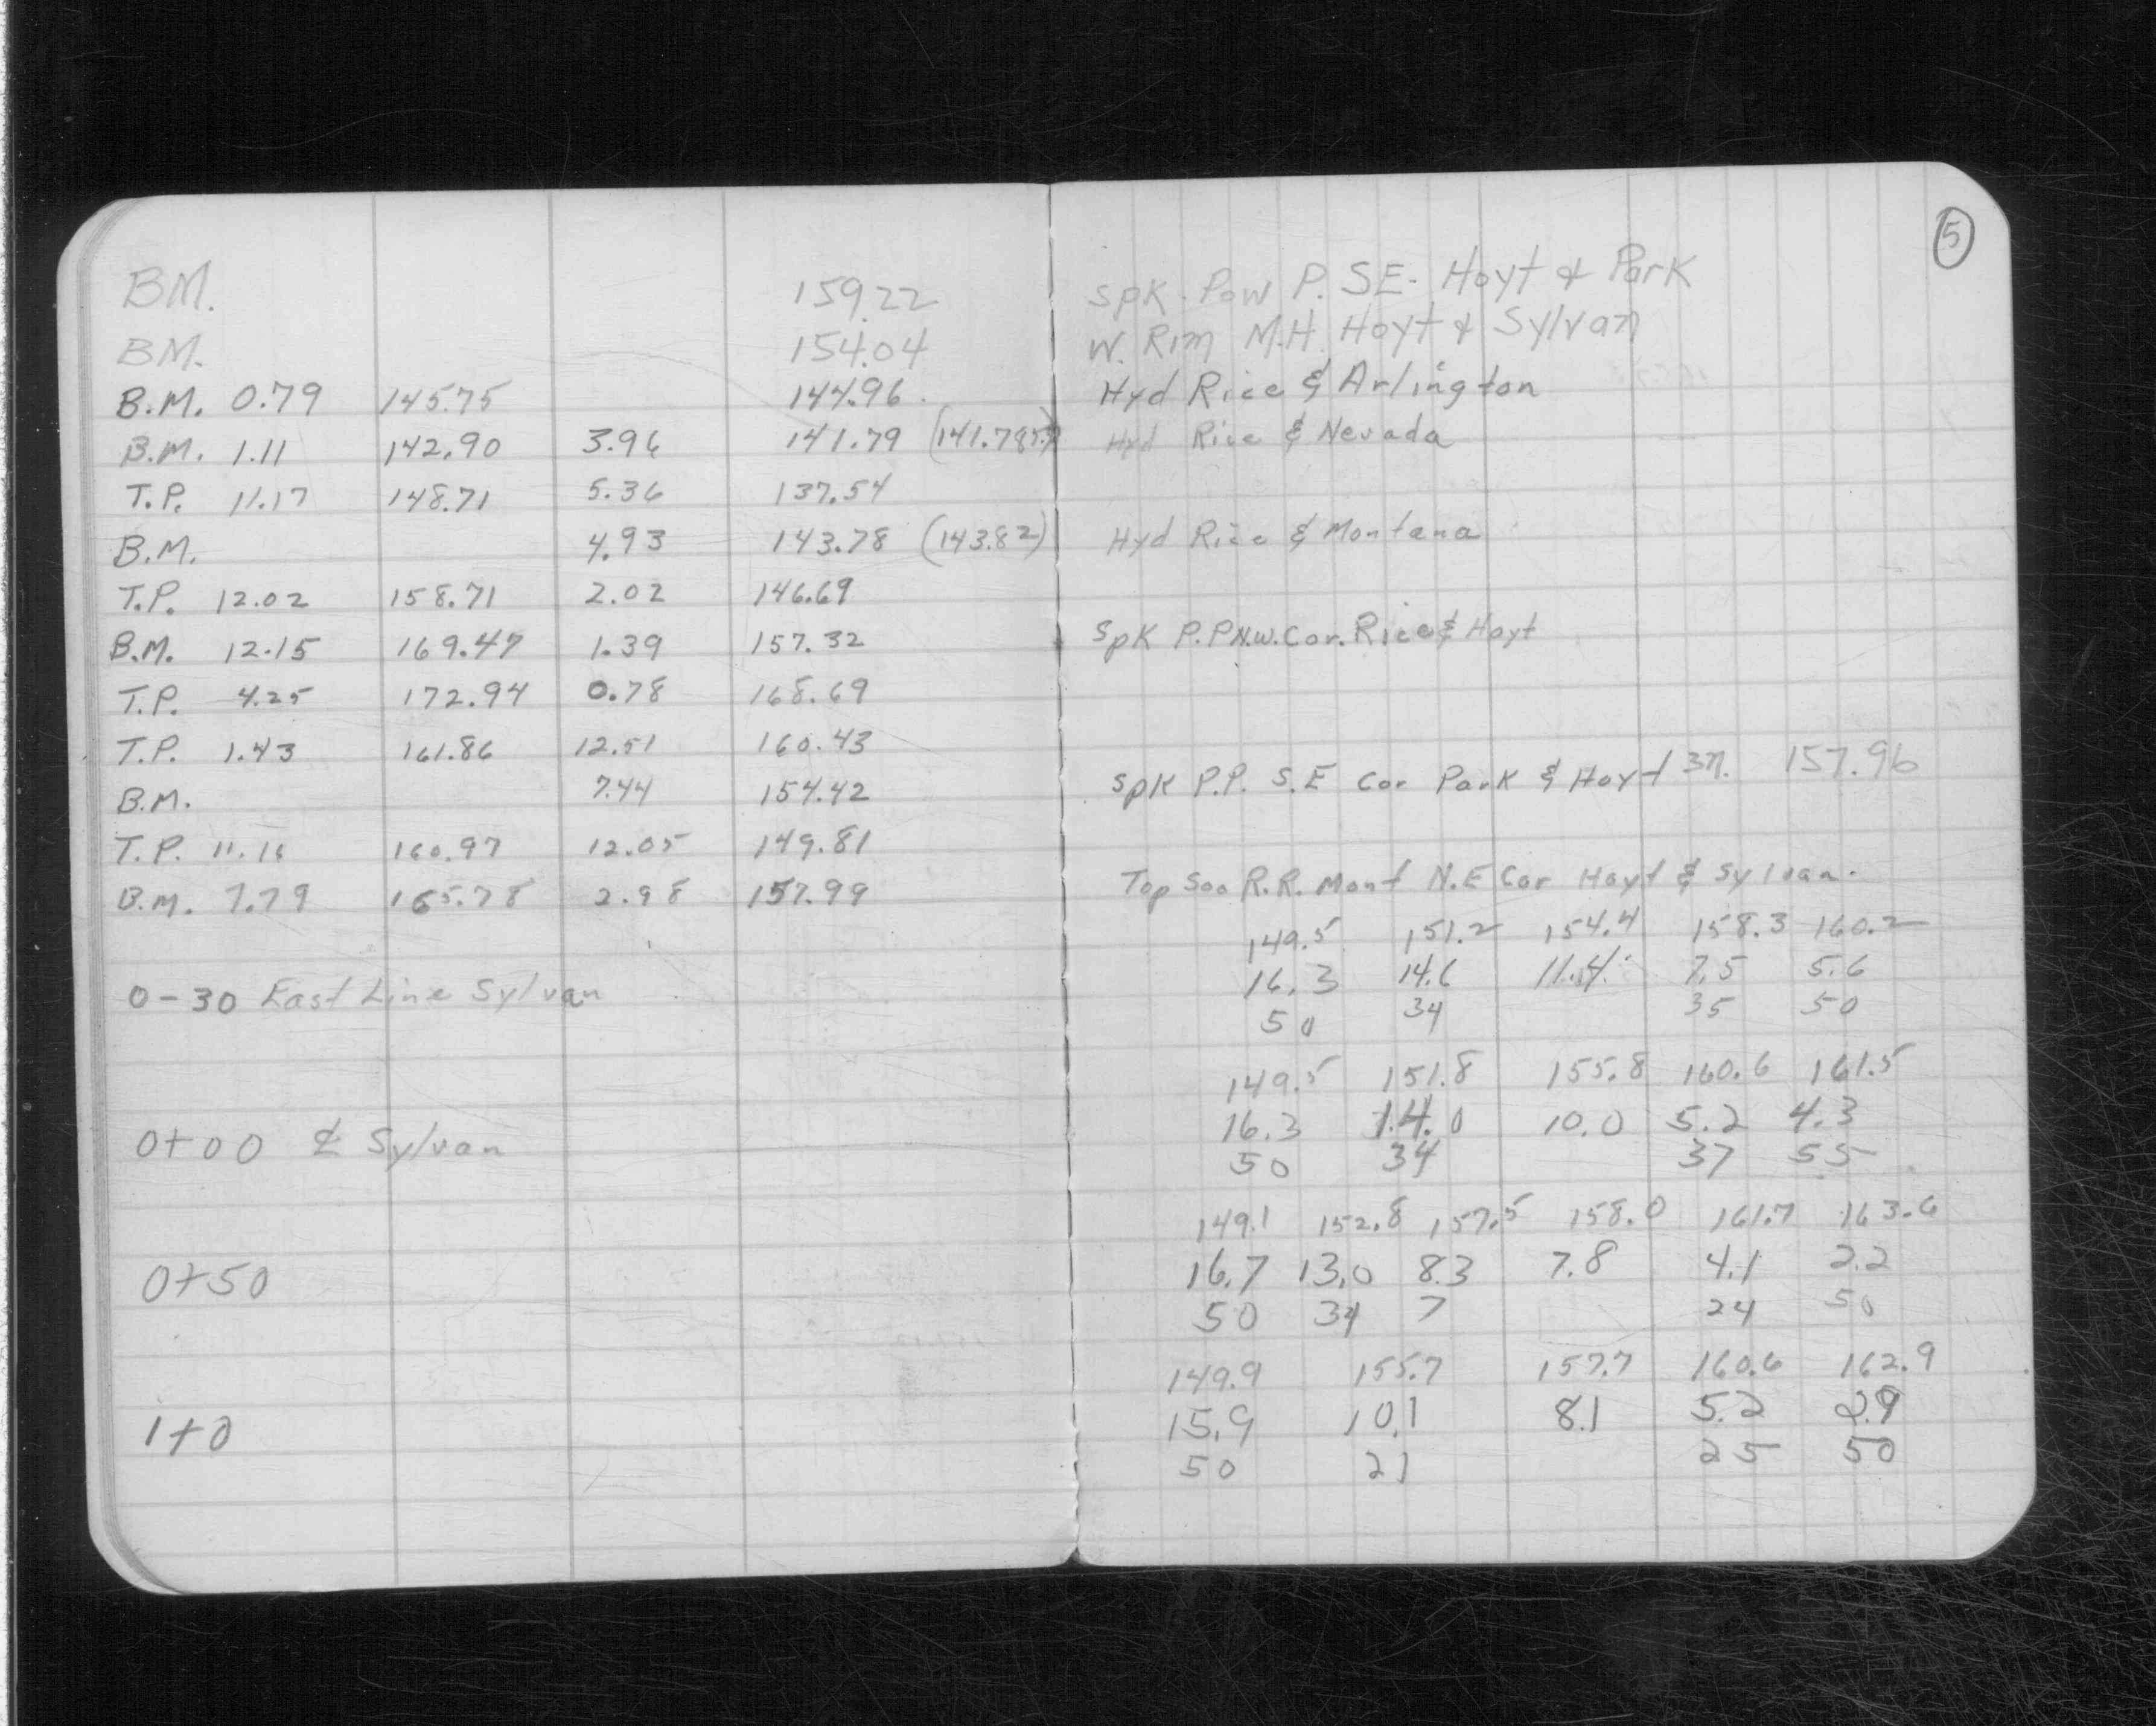 5
BM. 159.22 Spk. Pow P. SE. Hoyt & Park
BM. 154.04 W. Rim M.H. Hoyt & Sylvan
B.M. 0.79 145.75 144.96 Hyd Rice & Arlington
B.M. 1.11 142.90 3.96 141.79 Hyd Rice & Nevada
T.P. 11.17 148.71 5.36 137.54
B.M. 4.93 143.78 (143.82) Hyd Rice & Montana
T.P. 12.02 158.71 2.02 146.69
B.M. 12.15 169.47 1.39 157.32 Spk P.P N.W. Cor. Rice & Hoyt
T.P. 4.25 172.94 0.78 168.69
T.P. 1.43 161.86 12.51 160.43
B.M. 7.44 154.42 Spk P.P. S.E Cor Park & Hoyt 157.96
T.P. 11.16 160.97 12.05 149.81
B.M. 7.79 165.78 2.98 157.99 Top Soo R.R. Mont N.E Cor Hoyt & Sylvan.
149.5 151.2 154.4 158.3 160.2
0-30 East Line Sylvan 16.3 14.6 11.4 7.5 5.6
50 34 35 50
149.5 151.8 155.8 160.6 161.5
0+00 ℄ Sylvan 16.3 14.0 10.0 5.2 4.3
50 34 37 55
149.1 152.8 157.5 158.0 161.7 163.6
0+50 16.7 13.0 8.3 7.8 4.1 2.2
50 34 7 24 50
149.9 155.7 157.7 160.6 162.9
1+0 15.9 10.1 8.1 5.2 2.9
50 21 25 50